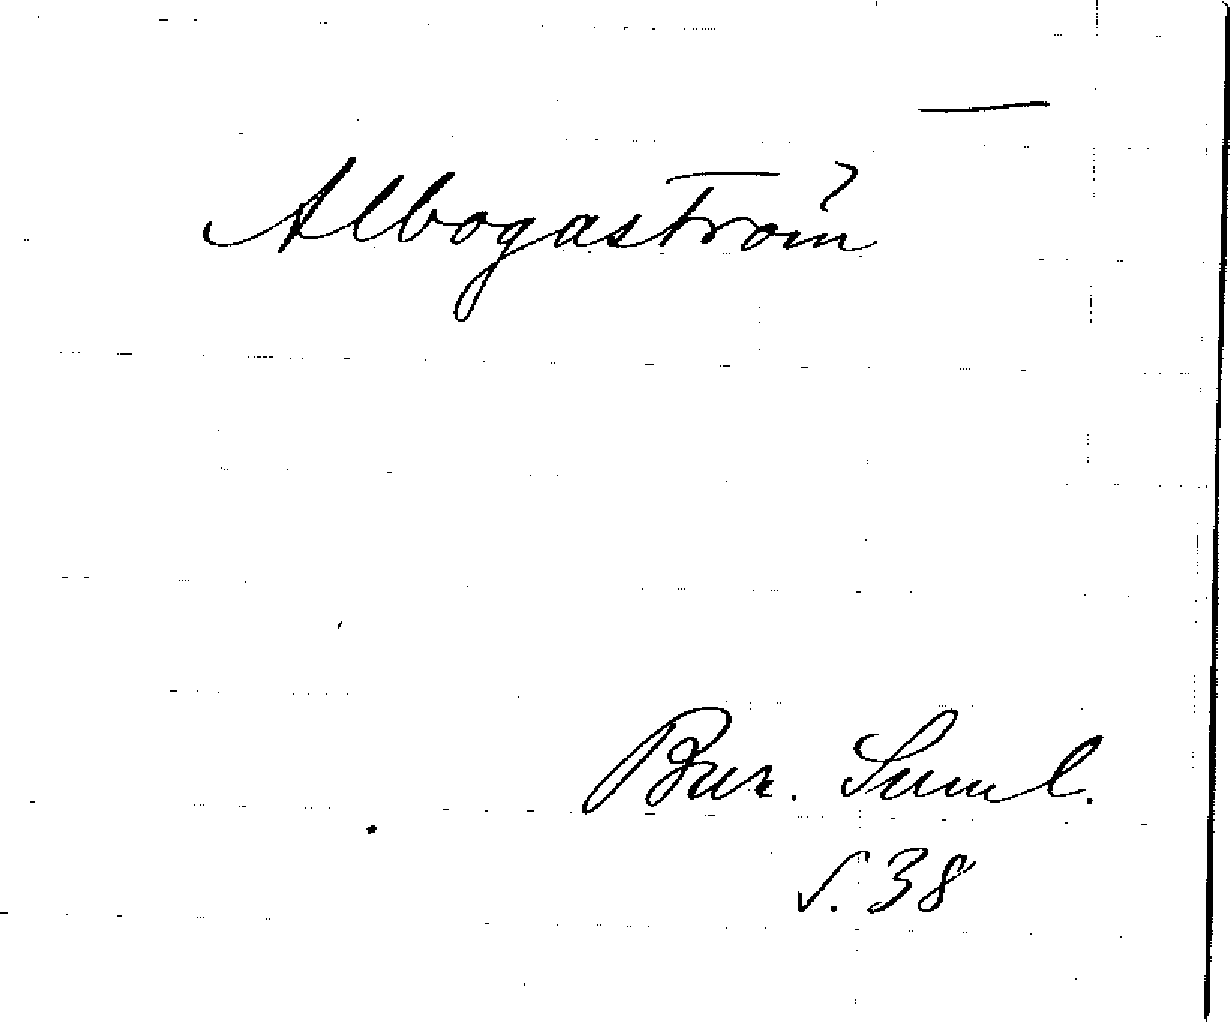 —
Albogaström
Bur. Suml.
s. 38